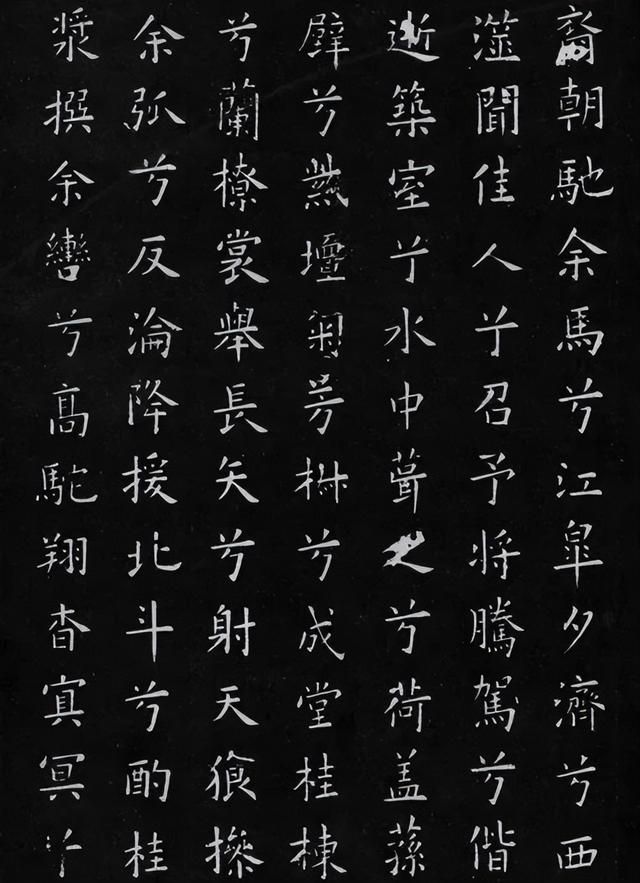 裔朝馳余馬兮江皐夕濟兮西
澨聞佳人兮召予將騰駕兮偕
逝築室兮水中葺之兮荷盖蓀
壁兮茈壇匊芳椒兮成堂桂棟
兮蘭橑裳舉長矢兮射天狼操
余弧兮反淪降援北斗兮酌桂
漿撰余轡兮高駝翔杳冥冥兮